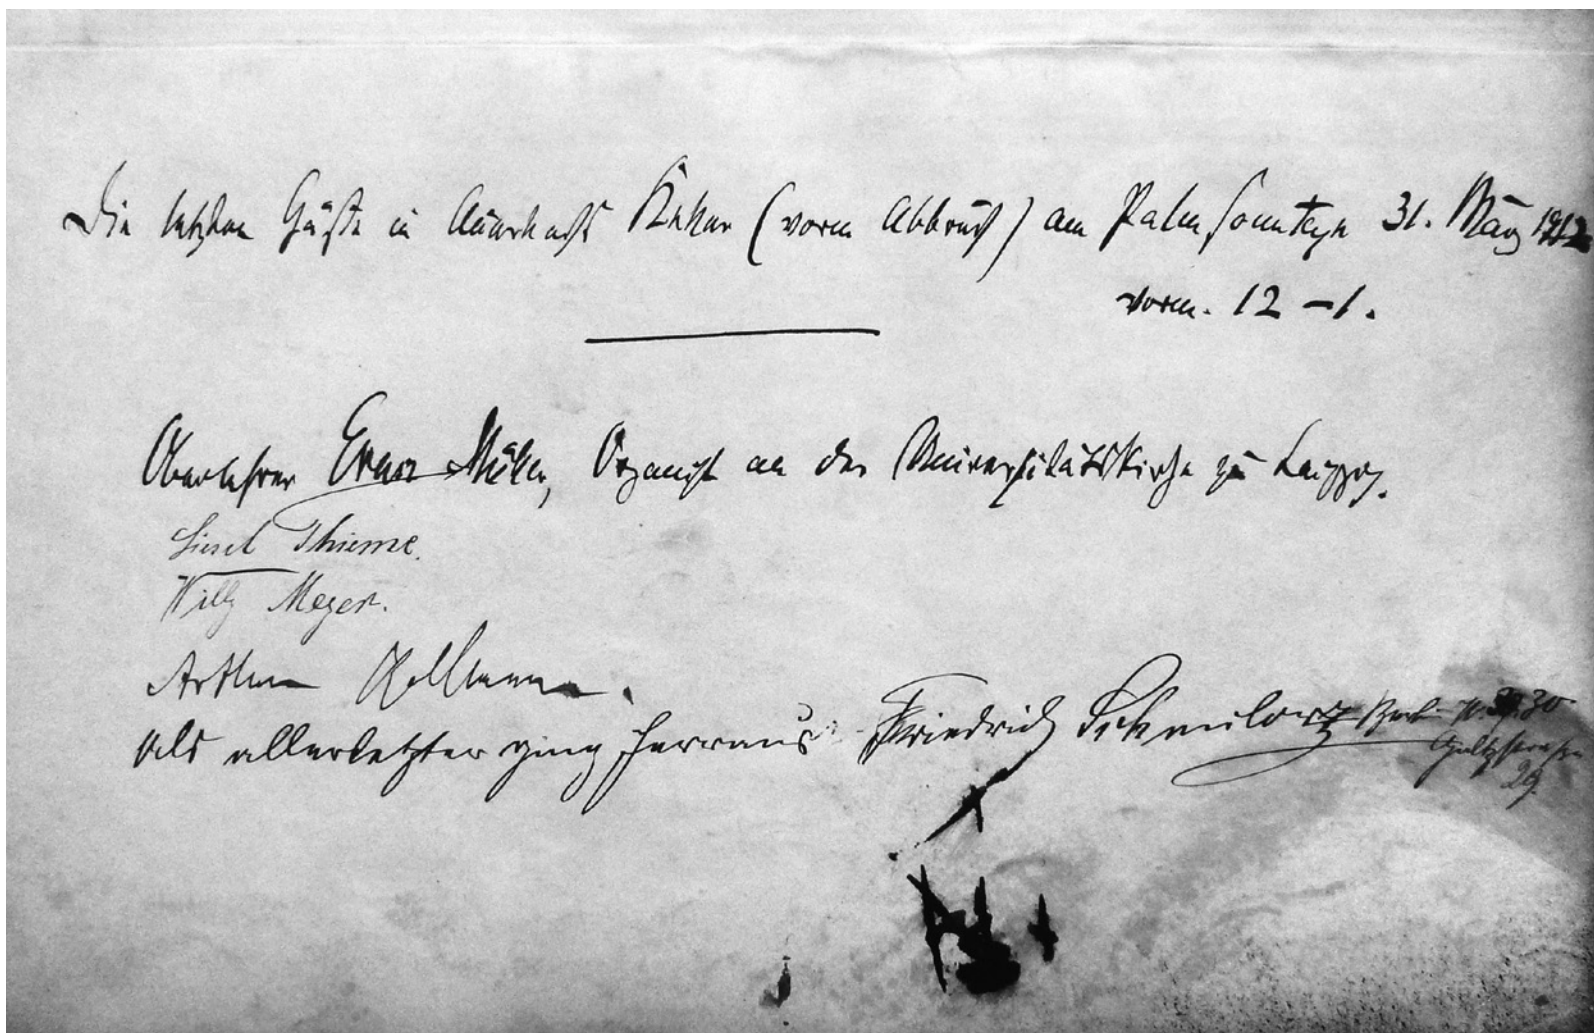 Die letzten Gäste in Auerbachs Keller (vorm Abbruch) am Palmsonntage 31. März 1912
vorm. 12 – 1.
Oberlehrer Ernst Müller, Organist an der Universitätskirche zu Leipzig.
Liesel Thieme.
Willy Meyer.
Arthur
Als allerletzter ging herraus Friedrich Berlin W. 30
Goltzstrasse
29.